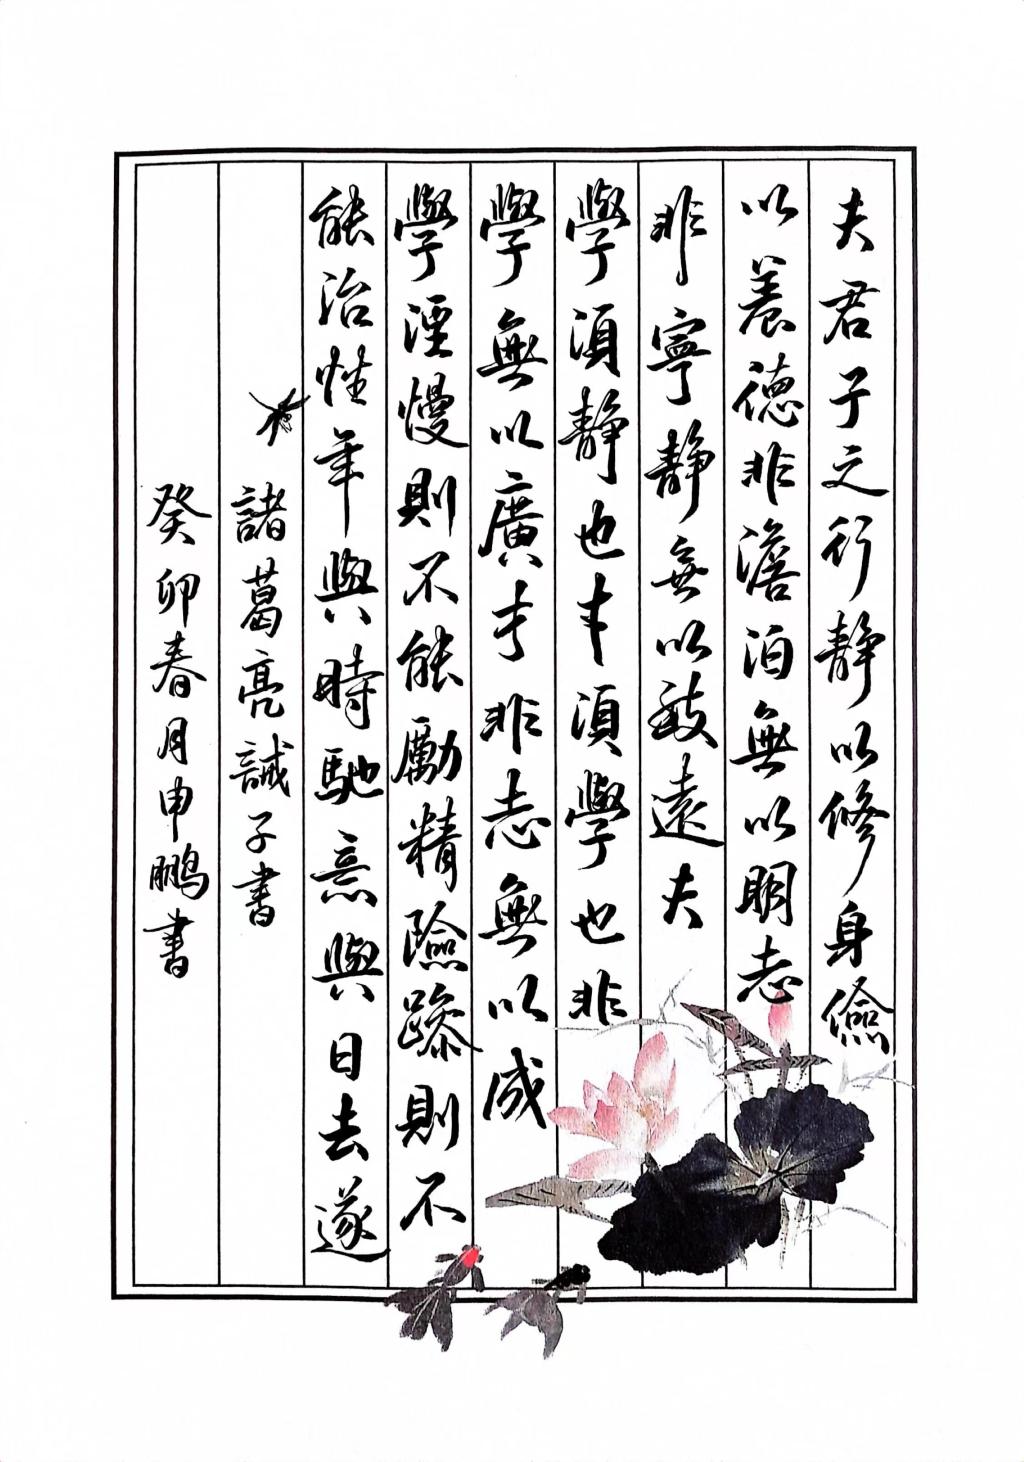 夫君子之行靜以修身儉
以養德非澹泊無以明志
非寧靜無以致遠夫
學須靜也才須學也非
學無以廣才非志無以成
學淫慢則不能勵精險躁則不
能治性年與時馳意與日去遂
諸葛亮誡子書
癸卯春月申鵬書